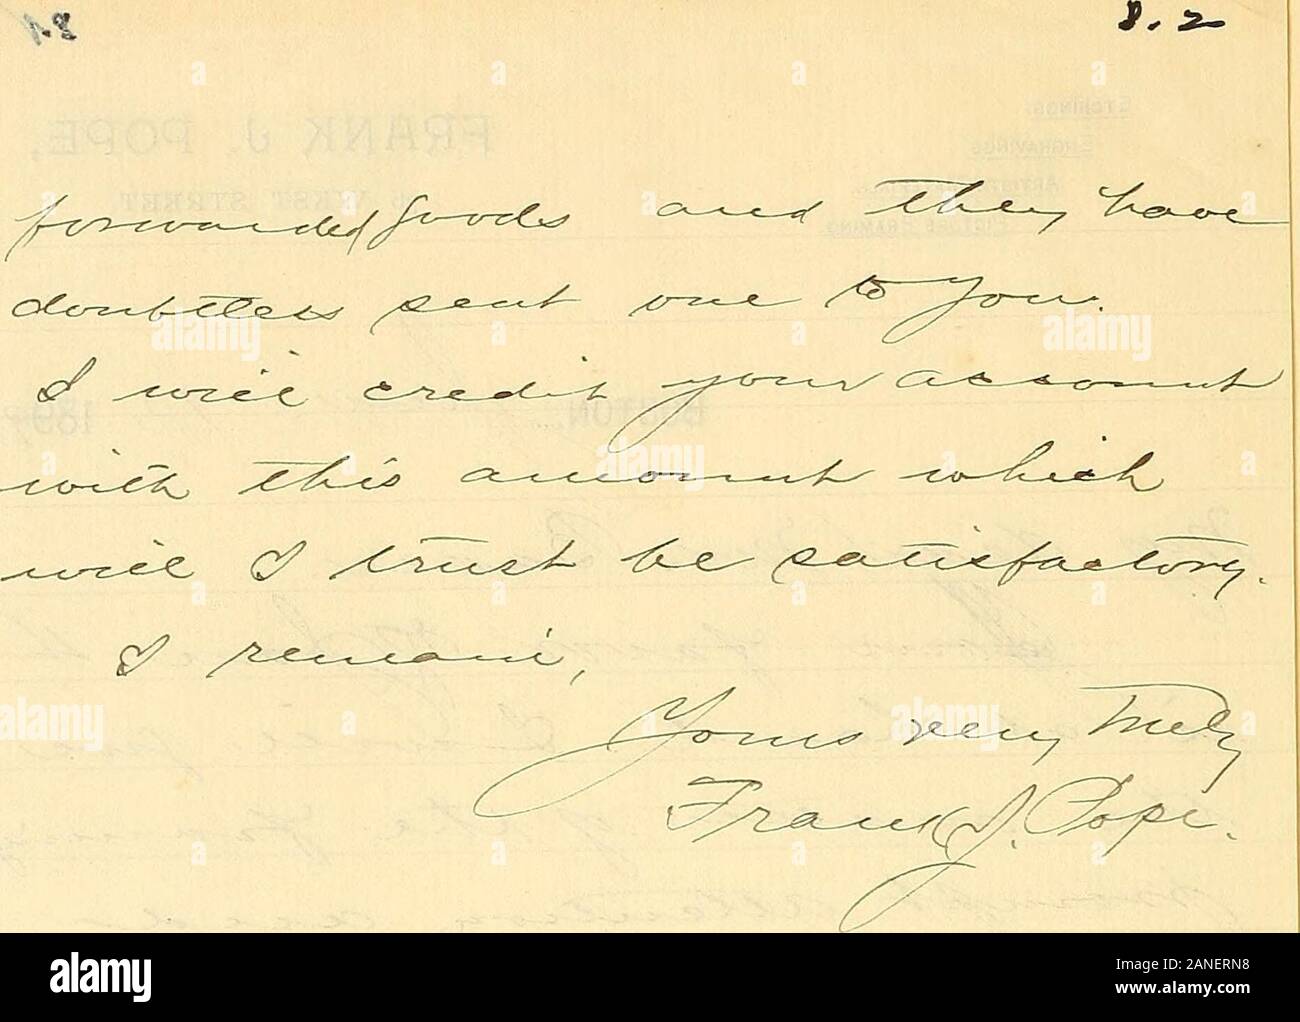 8.2
forwarded goods and they have
doubtless sent one to you.
I will credit your account
with this amount which
will I trust be satisfactory.
I remain,
Yours very truly
Frank J. Pope.
alamy
Image ID: 2ANERN8
www.alamy.com